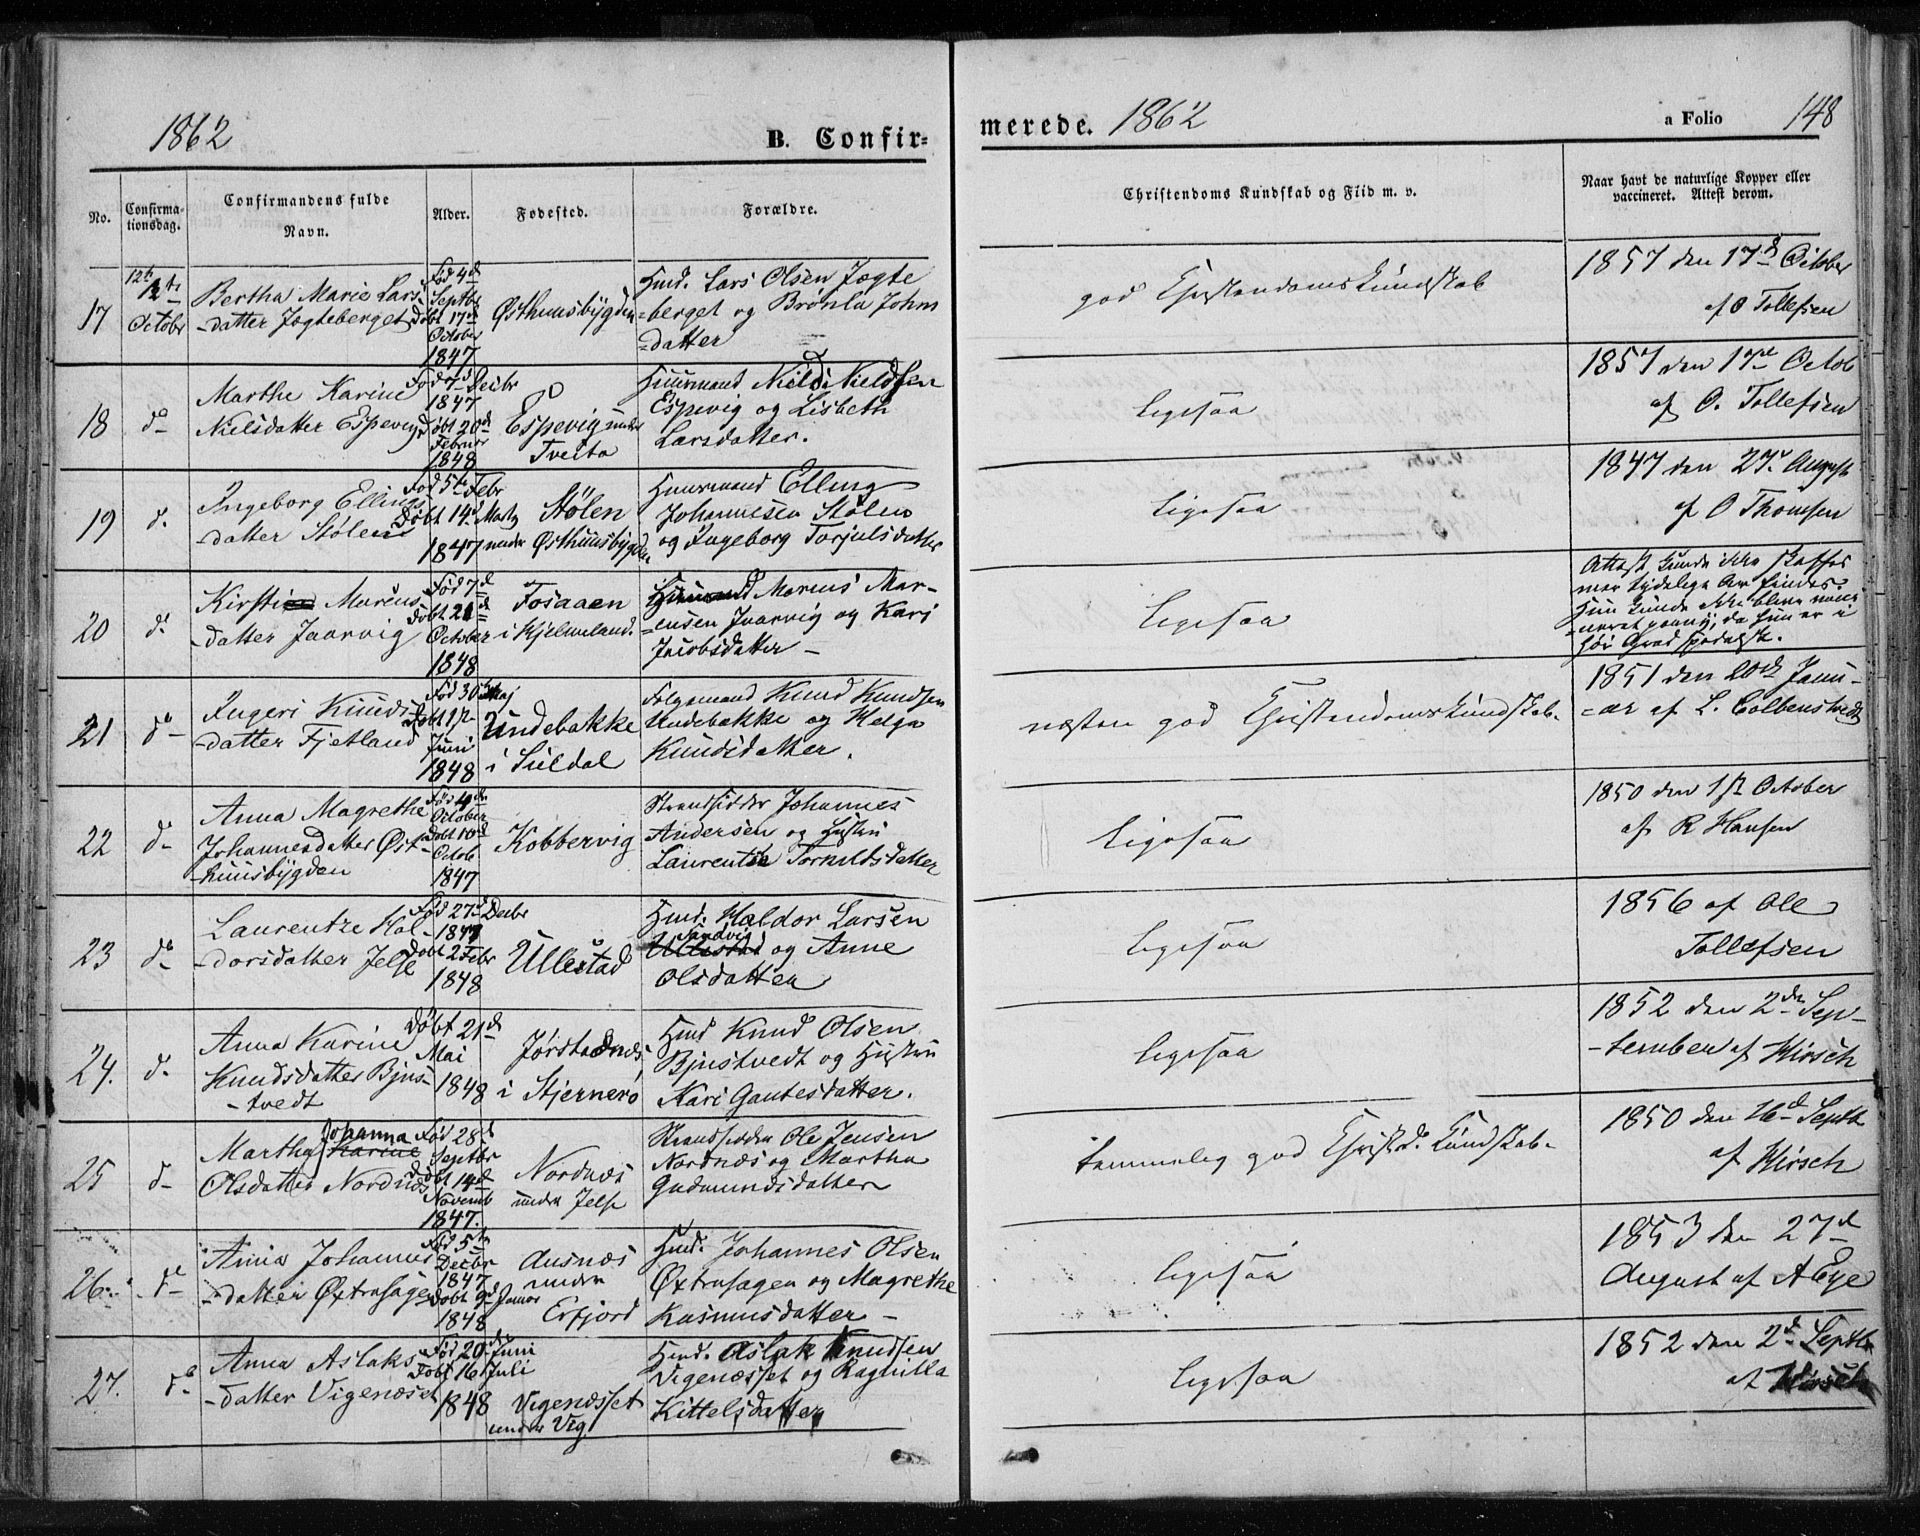 1862
B. Confir-
merede. 1862
a Folio 148
No.
Confirma-
tionsdag.
Confirmandens fulde
Navn.
Alder.
Fødested.
Forældre.
Christendoms Kundskab og Flid m. v.
Naar havt de naturlige Kopper eller
vaccineret. Attest derom.
17
12te
October
Bertha Marie Lars
-datter Jøgteberget
Fød 4d
Septbr
Døbt 17d
October
1847
Østhuusbÿgden
Huusd. Lars Olsen Jøgte
-berget og Brønla Johns
-datter
god Christendomskundskab
1857 den 17d October
af O Tollefsen
18
do
Marthe Karine
Nielsdatter Espevig
Fød 7d Decbr
1847
Døbt 20d
Februar
1848
Espevig under
Tveita
Huusmand Nield Nieldsen
Espevig og Lisbeth
Larsdatter.
Ligesaa
1857 den 17de Octob
af O. Tollefsen
19
do
Ingeborg Ellings
-datter Stølen
Fød 5te Febr
Døbt 14d Marts
1847
Stølen
under Østhuusbÿgden
Huusmand Elling
Johannesen Stølen
og Ingeborg Torjulsdatter
Ligesaa
1847 den 27d August
af O Thomsen
20
do
Kirsti Marcus
-datter Jaarvig
Fød 7d
Døbt 21d
October
1848
Fosaaen
i Hjelmeland.
Marcus Mar-
-cusen Jaarvig og Kari
Jacobsdatter -
Ligesaa
Attest kunde ikke skaffes
men tydelige Ar findes
Hun kunde ikke blive vacci
-neret da hun er i
høi Grad spedalsk.
21
do
Ingeri Knuds
-datter Fjetland
Fød 30 Maj
Døbt 1ste
Juni
1848
Undebakke
i Suldal
Følgemand Knud Knudsen
Undebakke og Helga
Knudsdatter.
næsten god Christendomskundskab.
1851 den 20de Janu-
-ar af L. Colbenstvedt
22
do
Anna Magrethe
Johannesdatter Øst-
huusbÿgden
Fød 4de
October
Døbt 10d
Octob
1847
Kobbervig
Strandsidder Johannes
Andersen og Hustru
Laurentse Tormodsdatter
Ligesaa
1850 den 1ste October
af R Hansen
23
do
Laurentze Hal-
-dorsdatter Jelse
Fød 27d Decbr
1847
Døbt 2 Febr
1848
Ullestad
Huusd. Haldor Larsen
Sandvig
Ullestad og Anne
Olsdatter
Ligesaa
1856 af Ole
Tollefsen
24.
do
Anna Karine
Knudsdatter Bjus-
-tvedt
Døbt 21d
Mai
1848
Jørstadnæs
i Stjernerø
Huusd Knud Olsen
Bjustvedt og Hustru
Kari Gautesdatter.
Ligesaa
1852 den 2den Sep-
-tember af Hirsch
25
do
Johanna
Martha Karine
Olsdatter Nordnæs
Fød 28d
Septbr
Døbt 14d
Novemb
1847.
Nordnæs
under Jelse
Strandsidder Ole Jensen
Nordnæs og Martha
Gudmundsdatter
temmelig god Christd. Kundskab.
1850 den 16d Septb
af Hirsch
26.
do
Anna Johannes
-datter Øxtrasagen
Fød 5te
Decbr
1847
Døbt 9d Januar
1848
Ausnæs
under
Erfjord
Huusd. Johannes Olsen
Øxtrasagen og Magrethe
Rasmusdatter -
Ligesaa
1853 den 27d
August af A Eye
27.
do
Anna Aslaks
-datter Vigenæset
Fød 20de Juni
Døbt 16 Juli
1848
Vigenæsset
under Vig
Huusd. Aslak Knudsen
Vigenæsset og Ragnilla
Kittelsdatter
Ligesaa
1852 den 2d Septbr
af Hirsch